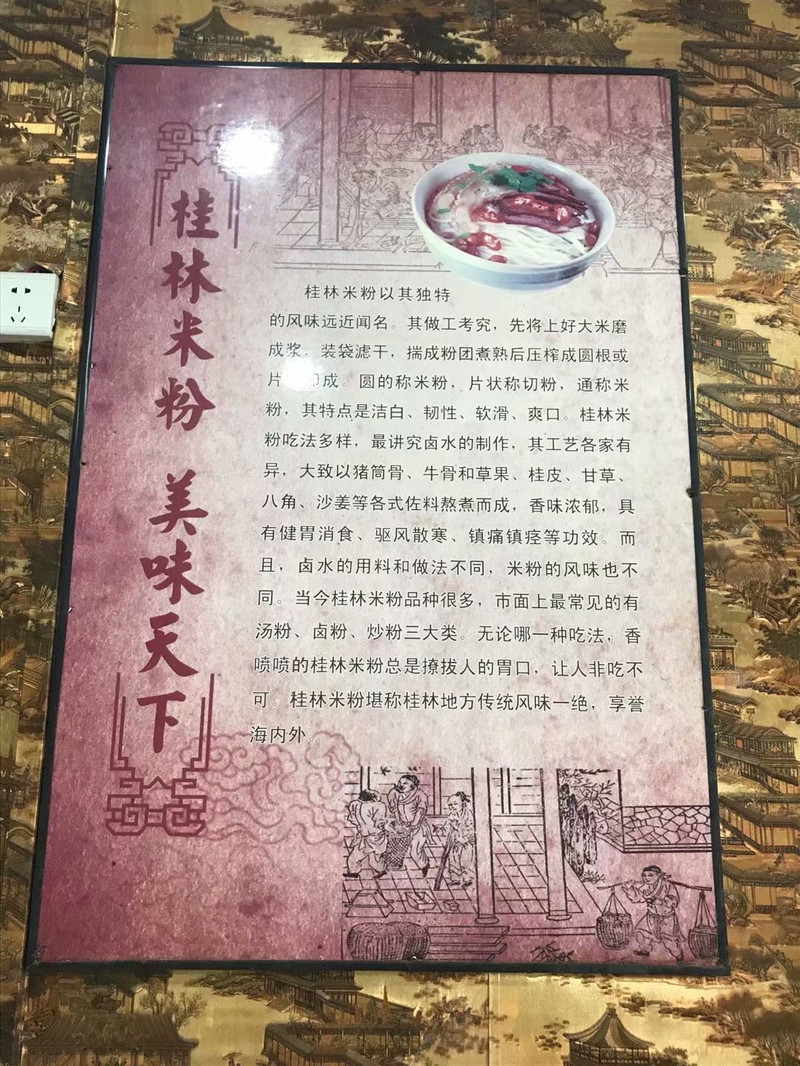 桂林米粉 美味天下
桂林米粉以其独特
的风味远近闻名。其做工考究，先将上好大米磨
成浆，装袋滤干，揣成粉团煮熟后压榨成圆根或
片 即成。圆的称米粉，片状称切粉，通称米
粉，其特点是洁白、韧性、软滑、爽口。桂林米
粉吃法多样，最讲究卤水的制作，其工艺各家有
异，大致以猪筒骨、牛骨和草果、桂皮、甘草、
八角、沙姜等各式佐料熬煮而成，香味浓郁，具
有健胃消食、驱风散寒、镇痛镇痉等功效。而
且，卤水的用料和做法不同，米粉的风味也不
同。当今桂林米粉品种很多，市面上最常见的有
汤粉、卤粉、炒粉三大类。无论哪一种吃法，香
喷喷的桂林米粉总是撩拔人的胃口，让人非吃不
可。桂林米粉堪称桂林地方传统风味一绝，享誉
海内外